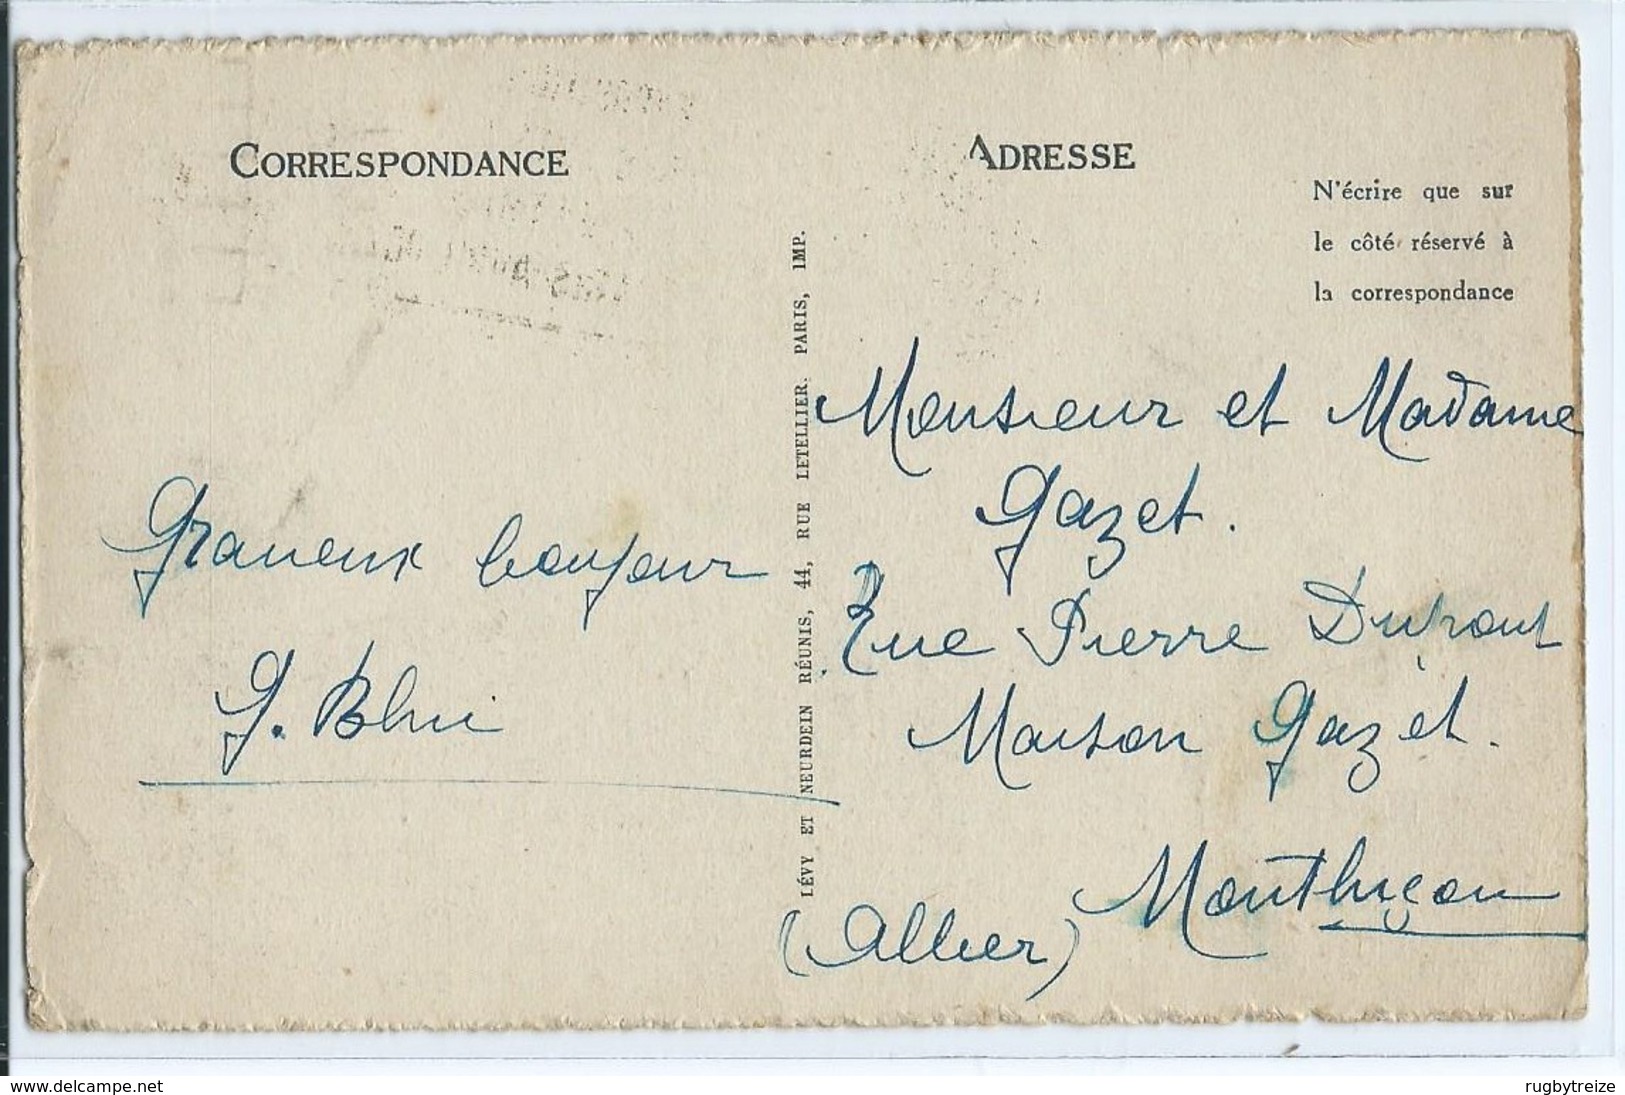 CORRESPONDANCE
Gracieux bonjour
ADRESSE
N'écrire que sur
le côté réservé à
la correspondance
Monsieur et Madame
Gazet.
Rue Pierre Dupont
Maison Gazet.
Montluçon
(Allier)
LÉVY ET NEURDEIN RÉUNIS, 44, RUE LETELLIER. PARIS, IMP.
www.delcampe.net
rugbytreize